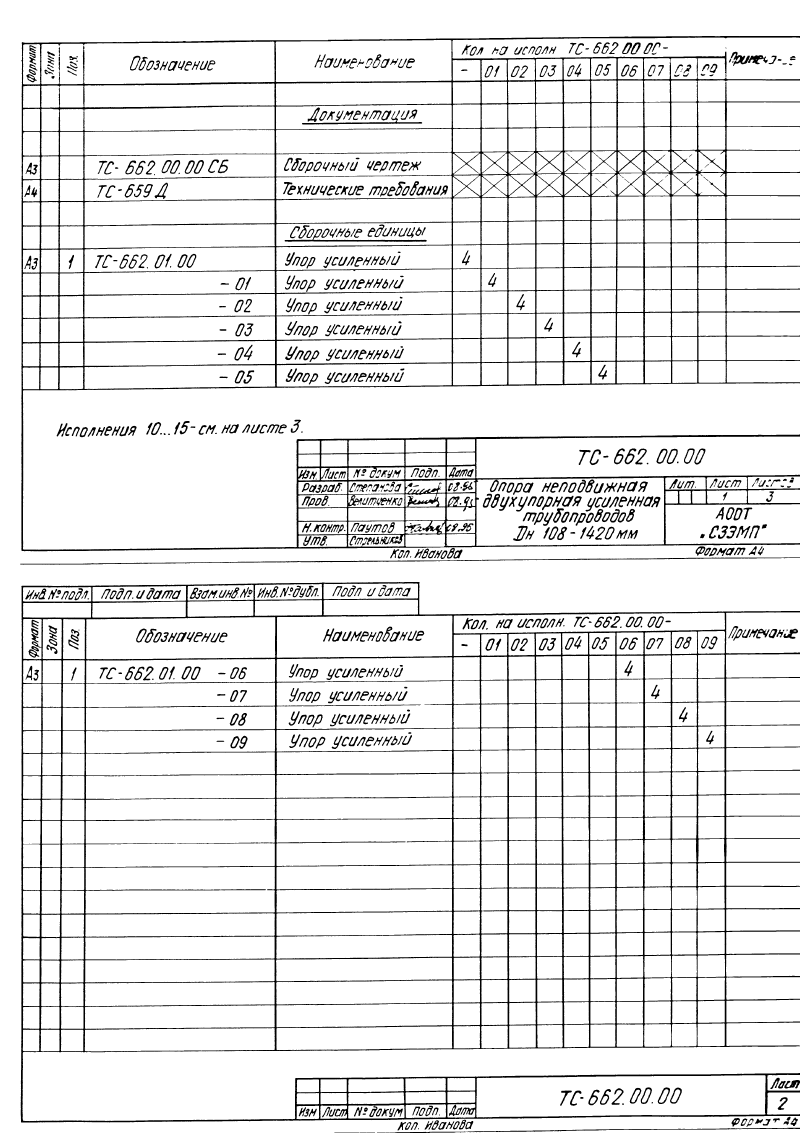 Формат Зона Поз. Обозначение Наименование Кол на исполн ТС-662 00 00- Примечание
- 01 02 03 04 05 06 07 08 09
Документация
А3 ТС-662.00.00 СБ Сборочный чертеж
А4 ТС-659 Д Технические требования
Сборочные единицы
А3 1 ТС-662.01.00 Упор усиленный 4
-01 Упор усиленный 4
-02 Упор усиленный 4
-03 Упор усиленный 4
-04 Упор усиленный 4
-05 Упор усиленный 4
Исполнения 10...15-см. на листе 3.
ТС-662.00.00
Изм Лист № докум Подп. Дата
Разраб. Степанова 08.95 Опора неподвижная Лит. Лист Листов
Пров. Величенко 08.95 двухупорная усиленная 1 3
трубопроводов АООТ
Н.контр. Паутов 08.95 Dн 108-1420 мм „СЗЭМП"
Утв. Стрельников
Коп. Иванова Формат А4
Инв.№подл. Подп. и дата Взам.инв № Инв.№дубл. Подп и дата
Формат Зона Поз Обозначение Наименование Кол. на исполн. ТС-662.00.00- Примечание
- 01 02 03 04 05 06 07 08 09
А3 1 ТС-662.01.00 -06 Упор усиленный 4
-07 Упор усиленный 4
-08 Упор усиленный 4
-09 Упор усиленный 4
ТС-662.00.00 Лист
2
Изм Лист № докум Подп. Дата
Коп. Иванова Формат А4